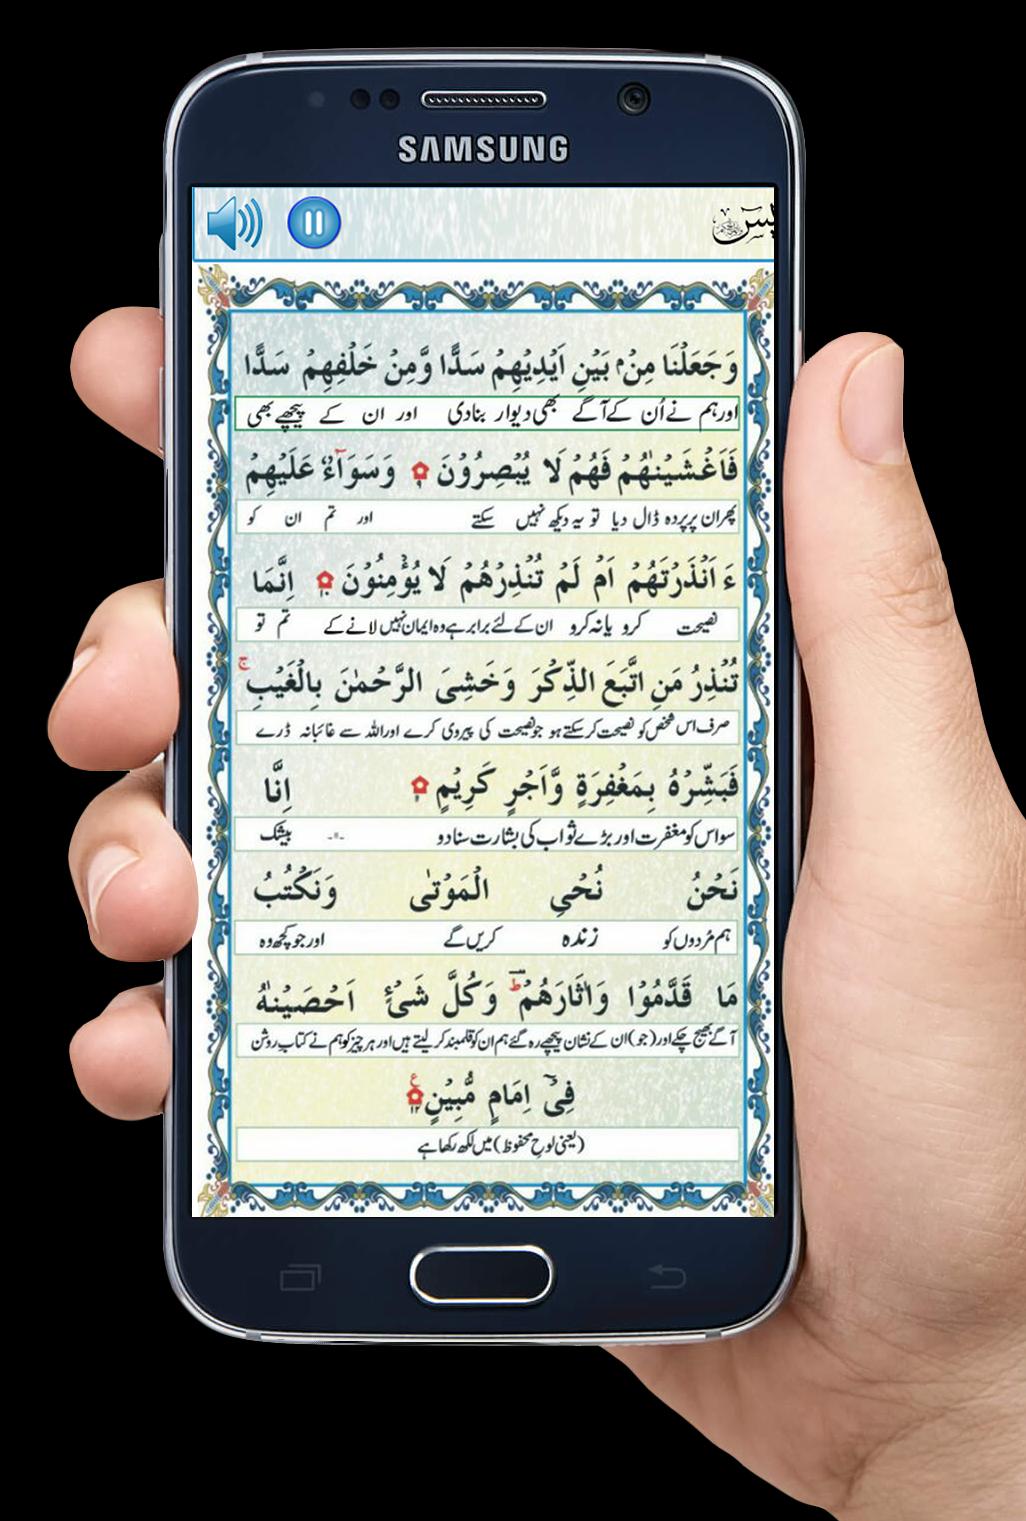 SAMSUNG
يٰسٓ
وَجَعَلْنَا مِنْۢ بَيْنِ اَيْدِيْهِمْ سَدًّا وَّمِنْ خَلْفِهِمْ سَدًّا
اور ہم نے اُن کے آگے بھی دیوار بنا دی اور ان کے پیچھے بھی
فَاَغْشَيْنٰهُمْ فَهُمْ لَا يُبْصِرُوْنَ ۹ وَسَوَآءٌ عَلَيْهِمْ
پھر ان پر پردہ ڈال دیا تو یہ دیکھ نہیں سکتے اور تم ان کو
ءَاَنْذَرْتَهُمْ اَمْ لَمْ تُنْذِرْهُمْ لَا يُؤْمِنُوْنَ ۱۰ اِنَّمَا
نصیحت کرو یا نہ کرو ان کے لئے برابر ہے وہ ایمان نہیں لانے کے تم تو
تُنْذِرُ مَنِ اتَّبَعَ الذِّكْرَ وَخَشِيَ الرَّحْمٰنَ بِالْغَيْبِ ۚ
صرف اس شخص کو نصیحت کر سکتے ہو جو نصیحت کی پیروی کرے اور اللہ سے غائبانہ ڈرے
فَبَشِّرْهُ بِمَغْفِرَةٍ وَّاَجْرٍ كَرِيْمٍ ۱۱ اِنَّا
سو اس کو مغفرت اور بڑے ثواب کی بشارت سنا دو بیشک
نَحْنُ نُحْيِ الْمَوْتٰى وَنَكْتُبُ
ہم مُردوں کو زندہ کریں گے اور جو کچھ وہ
مَا قَدَّمُوْا وَاٰثَارَهُمْ ؕ وَكُلَّ شَيْءٍ اَحْصَيْنٰهُ
آگے بھیج چکے اور (جو) ان کے نشان پیچھے رہ گئے ہم ان کو قلمبند کر لیتے ہیں اور ہر چیز کو ہم نے کتابِ روشن
فِيْٓ اِمَامٍ مُّبِيْنٍ ۱۲ ع
(یعنی لوحِ محفوظ) میں لکھ رکھا ہے